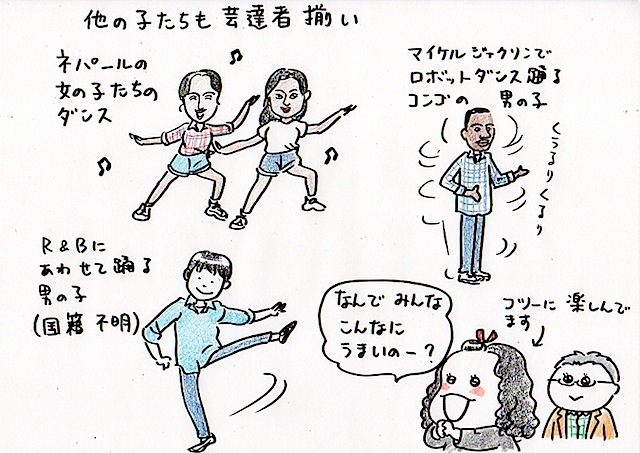 他の子たちも芸達者揃い
ネパールの
女の子たちの
ダンス
マイケルジャクソンで
ロボットダンス踊る
コンゴの 男の子
くうるりくるり
R&Bに
あわせて踊る
男の子
(国籍不明)
なんでみんな
こんなに
うまいのー?
コソーに楽しんで
ます